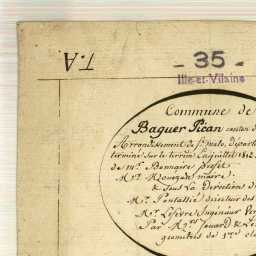 T.A
- 35 -
Ille-et-Vilaine
Commune de
Baguer Pican canton d
Arrondissement de St Malo, départ
terminé sur le terrein le juillet 1812
de Mr. Bonnaire préfet
Mr. maire :
& sous la direction d
Mr. directeur des
Mr. Lefevre Ingénieur Ver
Par Mrs. & Le
géomètres de 1ere cl